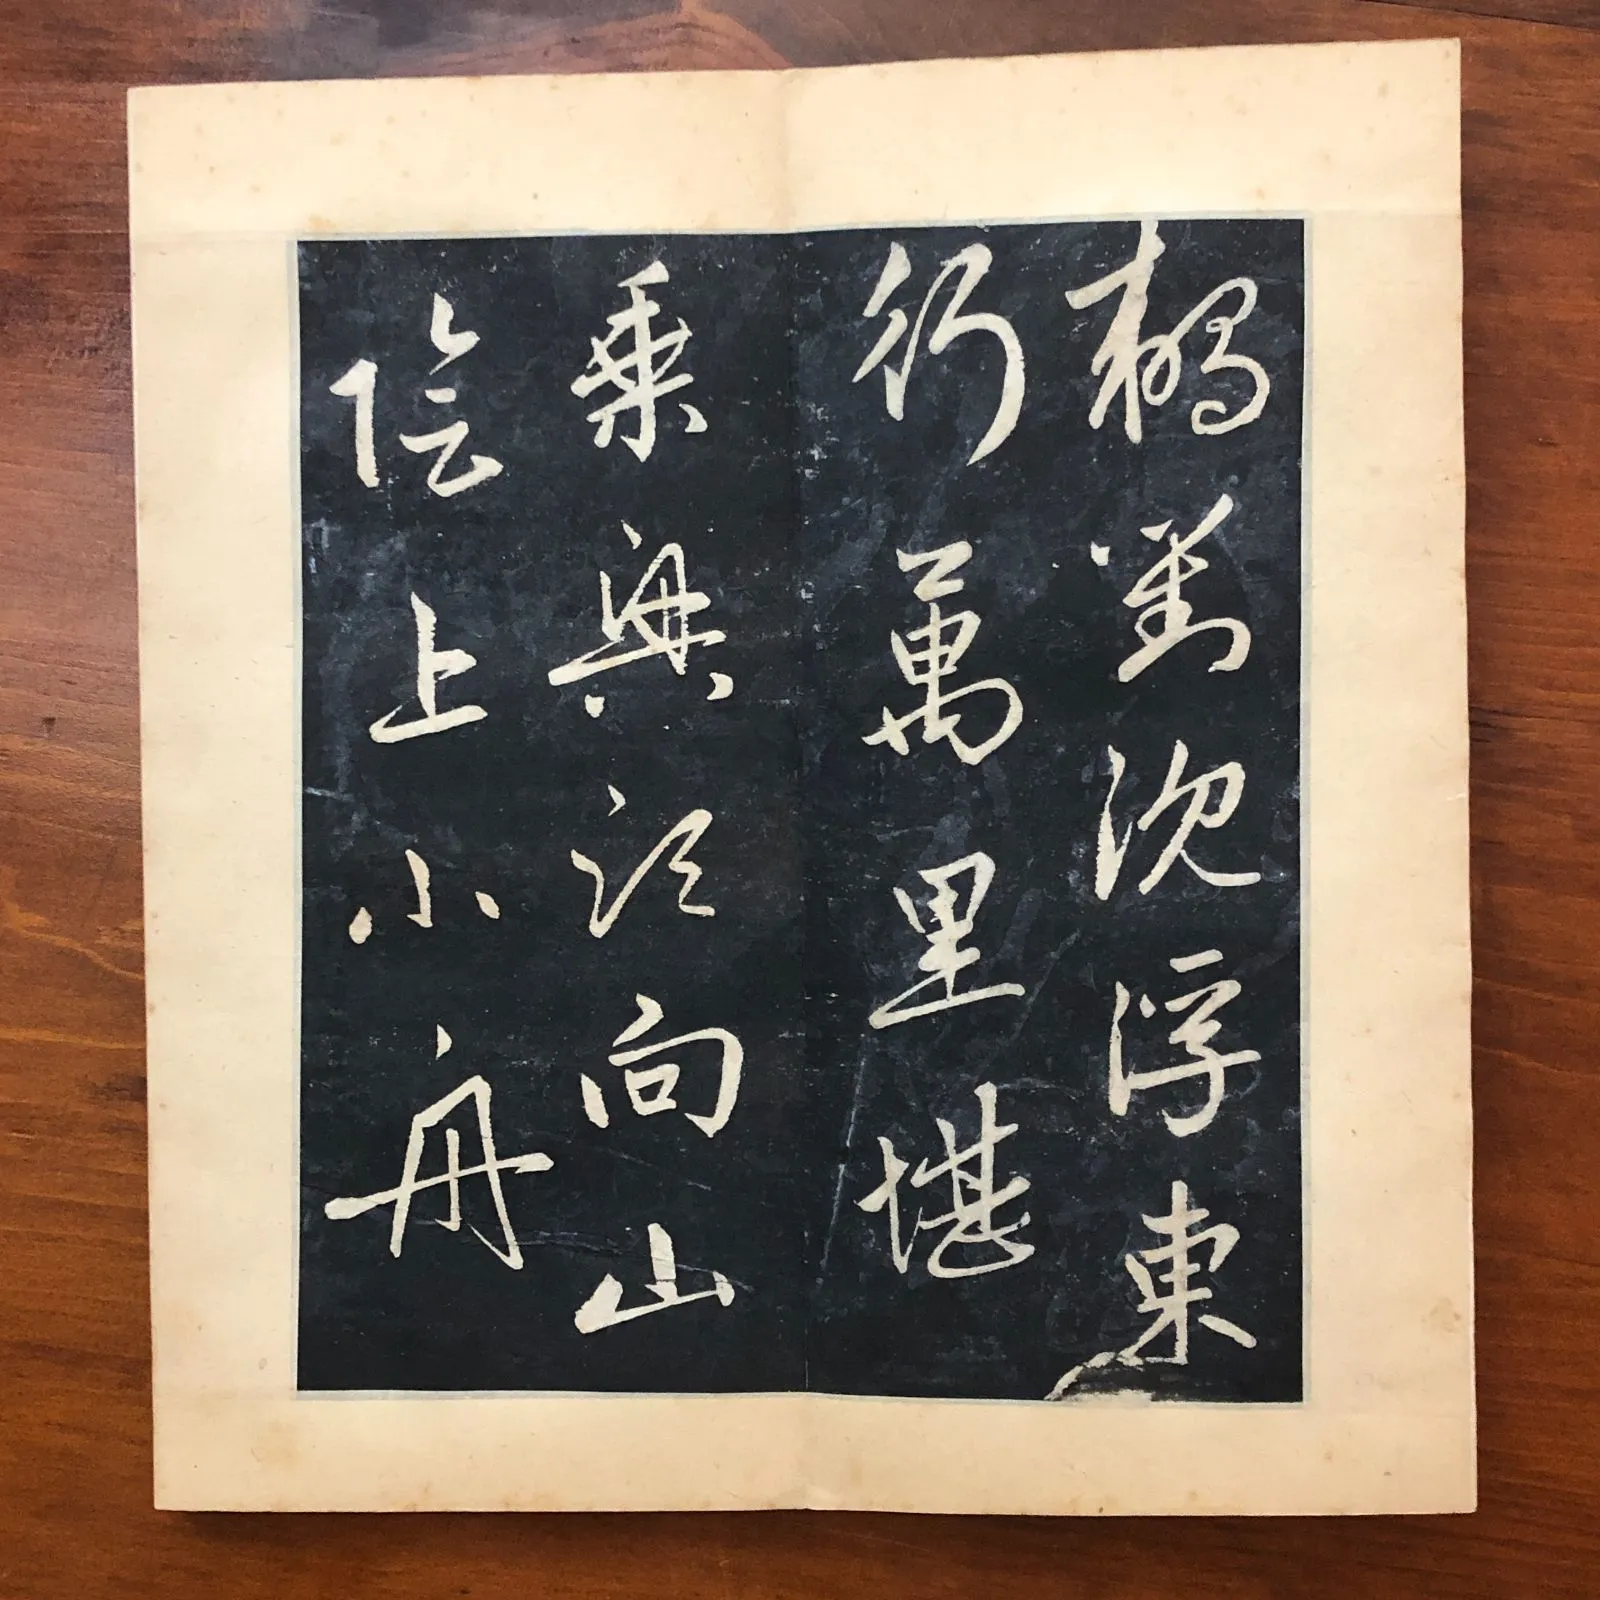 鶒對沈浮東
行萬里堪
乘興須向山
陰上小舟